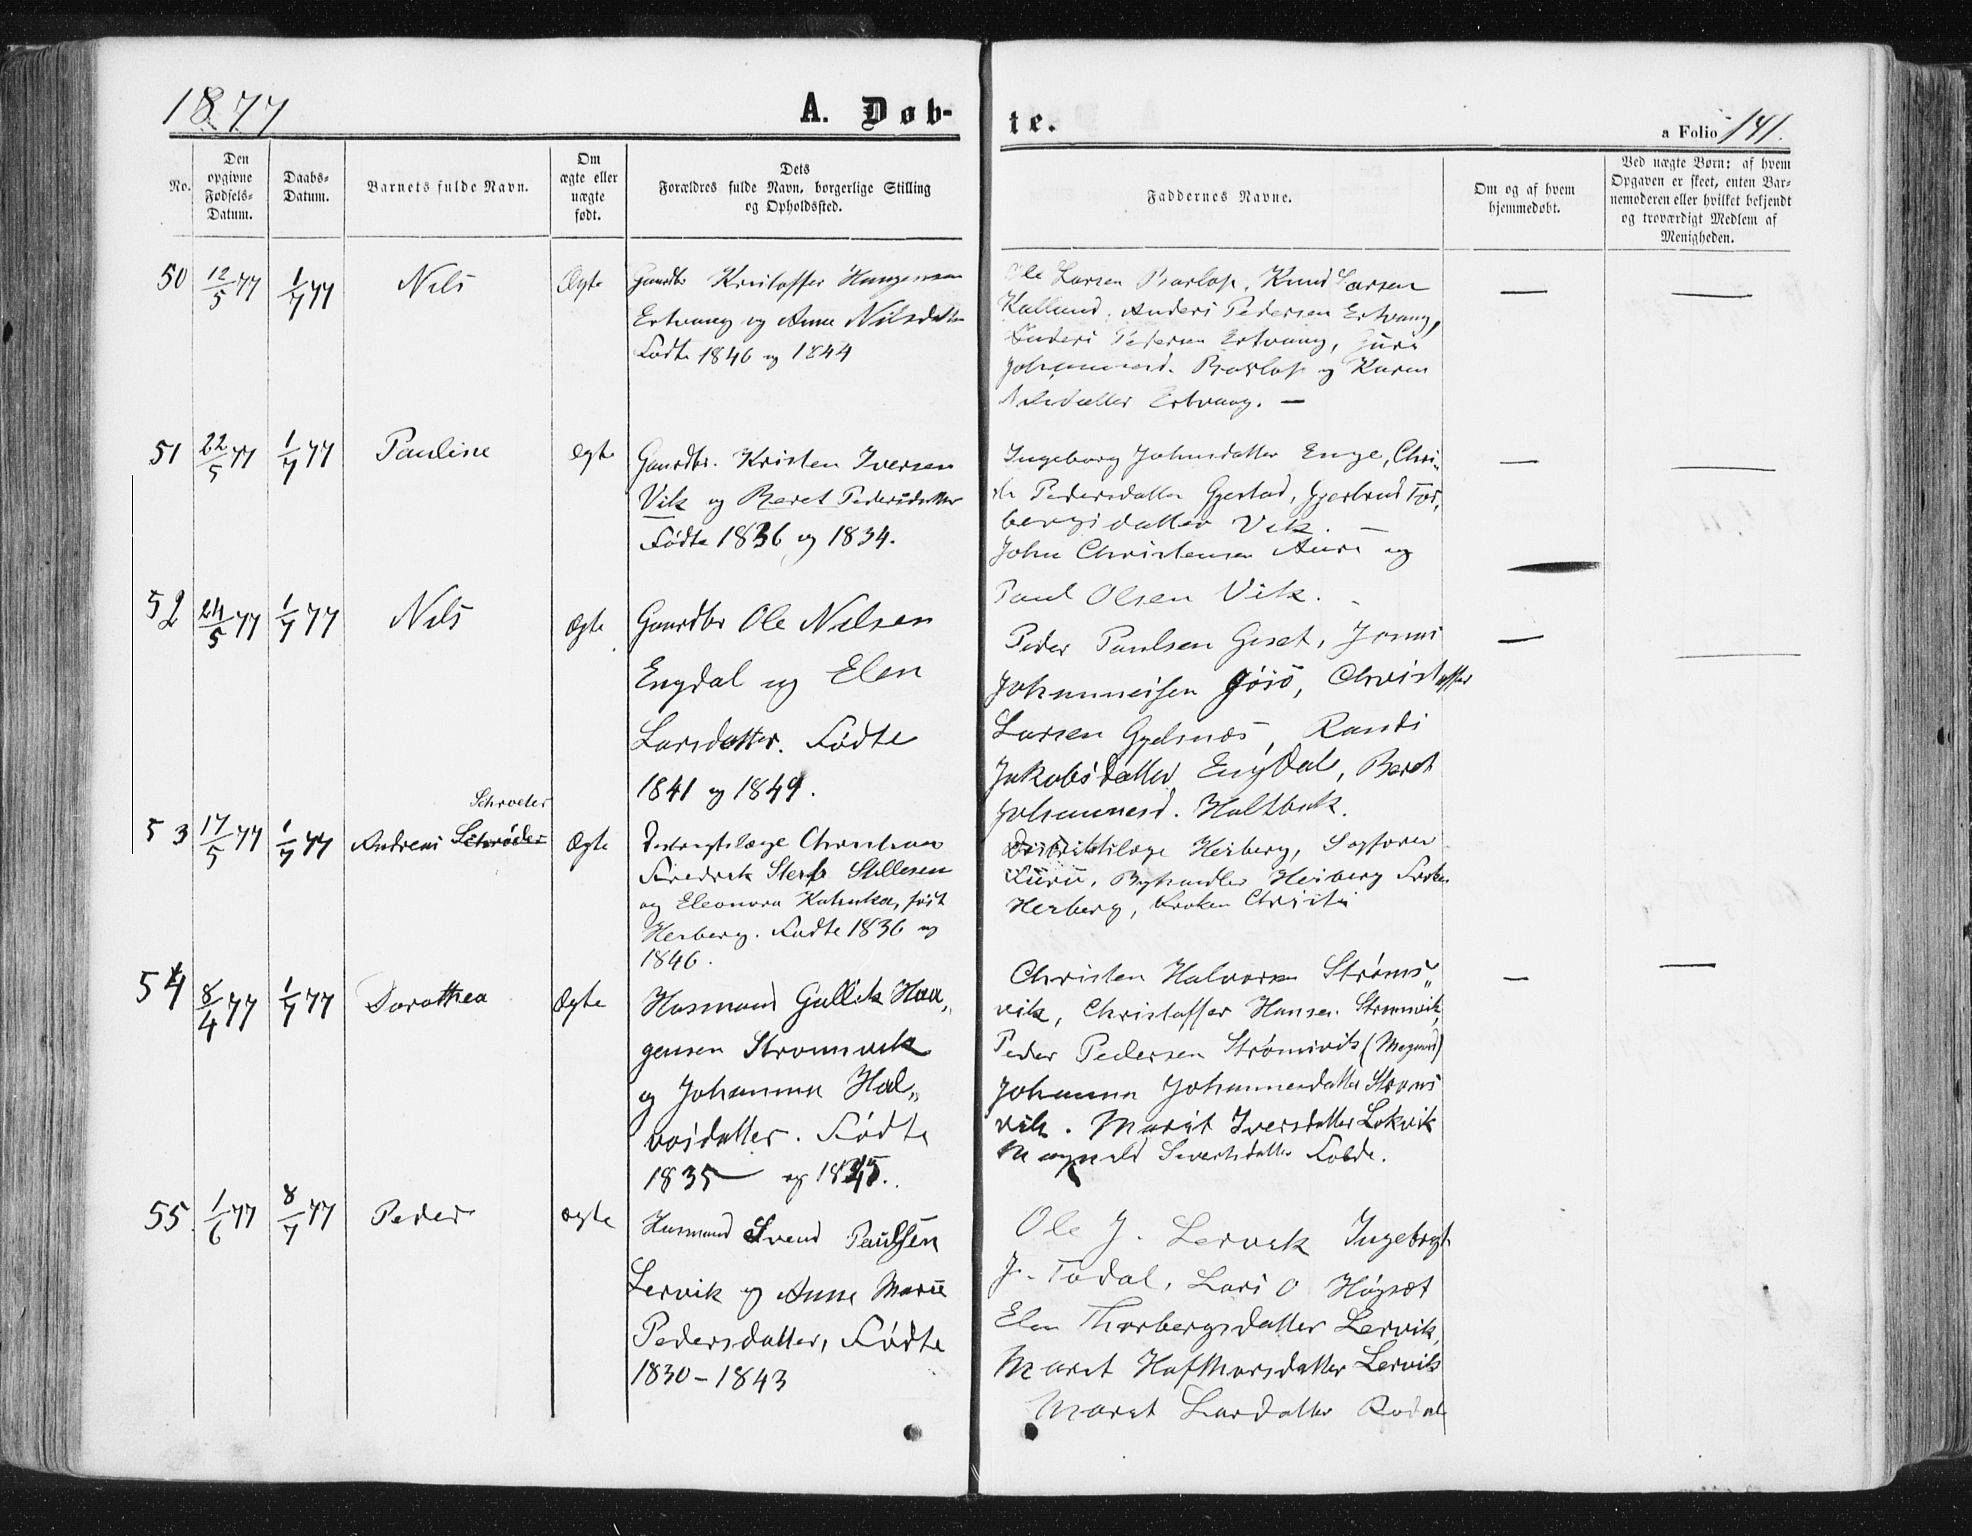 1877
A. Døb-
te.
a Folio 141.
No.
Den opgivne Fødsels-Datum.
Daabs-Datum.
Barnets fulde Navn.
Om ægte eller uægte født.
Dets Forældres fulde Navn, borgerlige Stilling og Opholdssted.
Faddernes Navne.
Om og af hvem hjemmedøbt.
Ved uægte Børn: af hvem Opgaven er skeet, enten Barnemoderen eller hvilket bekjendt og troværdigt Medlem af Menigheden.
50 12/5 77 1/7 77 Nils Ægte
Gaardbr Kristoffer Haugensen
Ertvaag og Anne Nilsdatter
Fødte 1846 og 1844
Ole Larsen Knud Larsen
Kalland, Anders Pedersen Ertvaag,
Anders Pedersen Ertvaag, Guri
Johannesd. og Karen
Nilsdatter Ertvaag. —
51 22/5 77 1/7 77 Pauline Ægte
Gaardbr. Kristen Iversen
Vik og Beret Pedersdatter
Fødte 1836 og 1834.
Ingeborg Johnsdatter Enge, Chri-
Pedersdatter Gjerstad, Gjertrud Tor-
bergsdatter Vik. —
John Christensen Aure og
Paul Olsen Vik. -
52 24/5 77 1/7 77 Nils Ægte
Gaardbr Ole Nilsen
Engdal og Elen
Larsdatter. Fødte
1841 og 1849.
Peder Paulsen Geset, Jonas
Johannessen Christoffer
Larsen Gjelsnæs, Randi
Jakobsdatter Engdal, Beret
Johannesd. Holtbak.
53 17/5 77 1/7 77 Andreas Schrøder Ægte
Schroeter
Distriktslæge Christian
Fredrik Stillesen
og Eleonora født
Heiberg. Fødte 1836 og
1846.
Distriktslæge Heiberg, Sagfører
Byhandler Heiberg Frøken
Heiberg, Frøken Christie
54 8/4 77 1/7 77 Dorothea Ægte
Husmand Gullik Hau-
gensen Strømsvik
og Johanna Hal-
vorsdatter. Fødte
1835 og 1845.
Christen Halvorsen Strøms-
vik, Christoffer Hansen Strømsvik,
Peder Pedersen Strømsvik
Johanna Johannesdatter Strøms
vik. Marit Iversdatter Lokvik
Magnild Sivertsdatter Folde.
55 1/6 77 8/7 77 Peder Ægte
Husmand Svend Paulsen
Lervik og Anne Marie
Pedersdatter, Fødte
1830 - 1843
Ole J. Lervik Ingebrigt
J. Todal, Lars O Høgset
Elen Thorbergsdatter Lervik,
Maret Hafthorsdatter Lervik
Maret Larsdatter Rodal